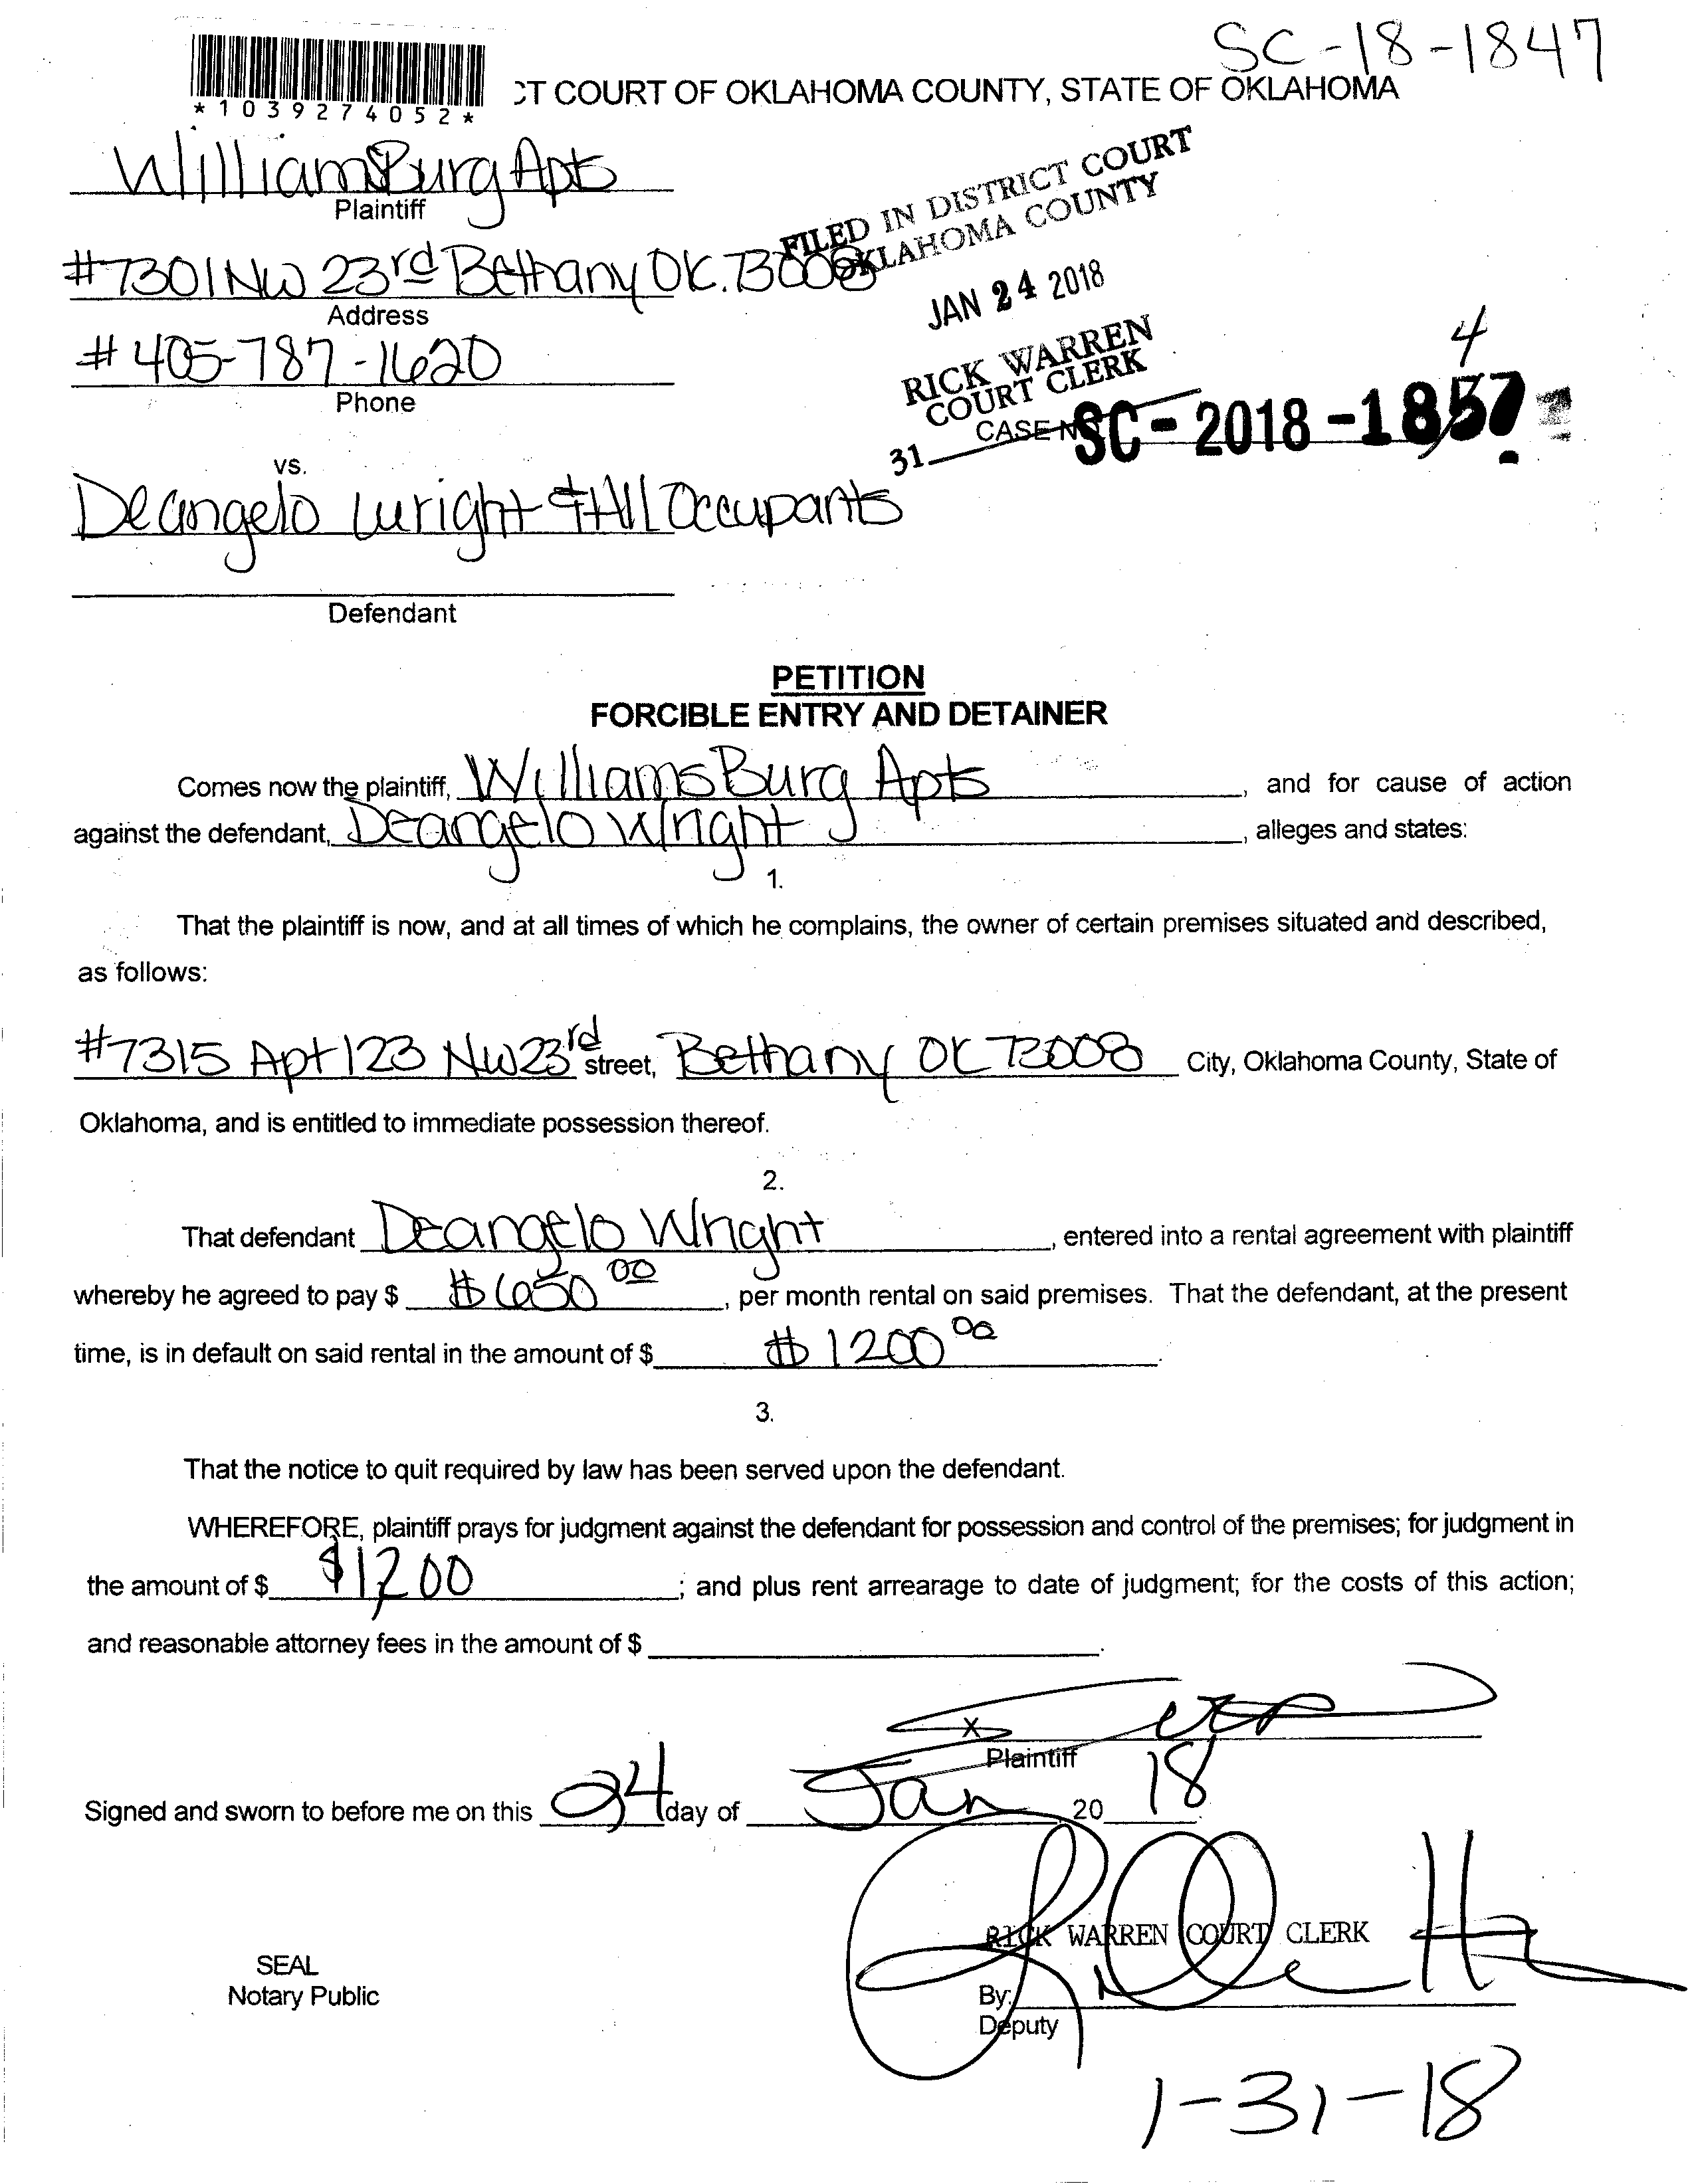 SC-18-1847
*1039274052*
CT COURT OF OKLAHOMA COUNTY, STATE OF OKLAHOMA
WilliamsBurg Apts
Plaintiff
FILED IN DISTRICT COURT
OKLAHOMA COUNTY
#7301 NW 23rd Bethany OK. 73008
Address
JAN 24 2018
#405-787-1620
Phone
RICK WARREN
COURT CLERK
4
CASE NO. SC-2018-1857
31
vs.
Deangelo Wright & All Occupants
Defendant
PETITION
FORCIBLE ENTRY AND DETAINER
Comes now the plaintiff, WilliamsBurg Apts, and for cause of action
against the defendant, Deangelo Wright, alleges and states:
1.
That the plaintiff is now, and at all times of which he complains, the owner of certain premises situated and described,
as follows:
#7315 Apt 123 NW 23rd street, Bethany OK 73008 City, Oklahoma County, State of
Oklahoma, and is entitled to immediate possession thereof.
2.
That defendant Deangelo Wright, entered into a rental agreement with plaintiff
whereby he agreed to pay $ $650 00, per month rental on said premises. That the defendant, at the present
time, is in default on said rental in the amount of $ $1200 00.
3.
That the notice to quit required by law has been served upon the defendant.
WHEREFORE, plaintiff prays for judgment against the defendant for possession and control of the premises; for judgment in
the amount of $ $1,200; and plus rent arrearage to date of judgment; for the costs of this action;
and reasonable attorney fees in the amount of $ .
X
Plaintiff
Signed and sworn to before me on this 24 day of Jan, 20 18.
RICK WARREN COURT CLERK
SEAL
Notary Public
By:
Deputy
1-31-18